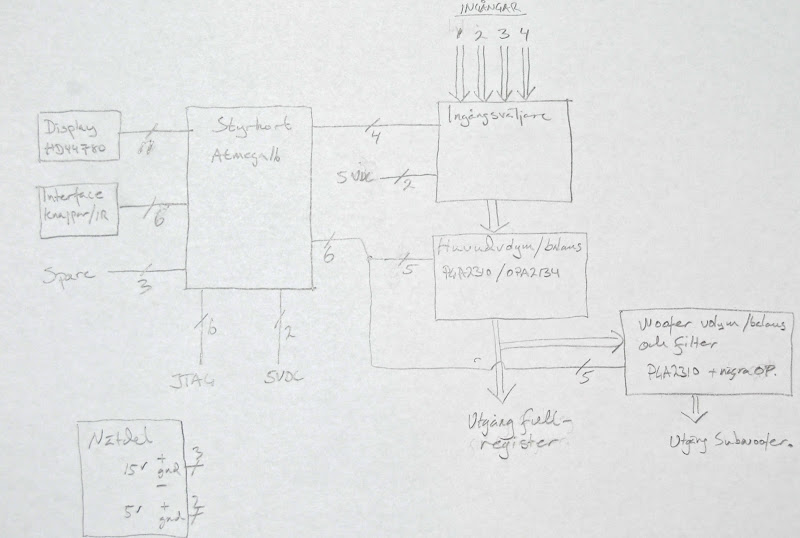 INGÅNGAR
1 2 3 4
Display
HD44780
11
Styrkort
Atmega16
4
Ingångsväljare
5VDC
2
Interface
knappar/IR
6
Spare
3
6
5
Huvudvolym/balans
PGA2310/OPA2134
6
JTAG
2
5VDC
Woofer volym/balans
och filter
PGA2310 + några OP.
5
Utgång full-
register
Utgång Subwoofer.
Nätdel
15V + gnd -
3
5V + gnd
2